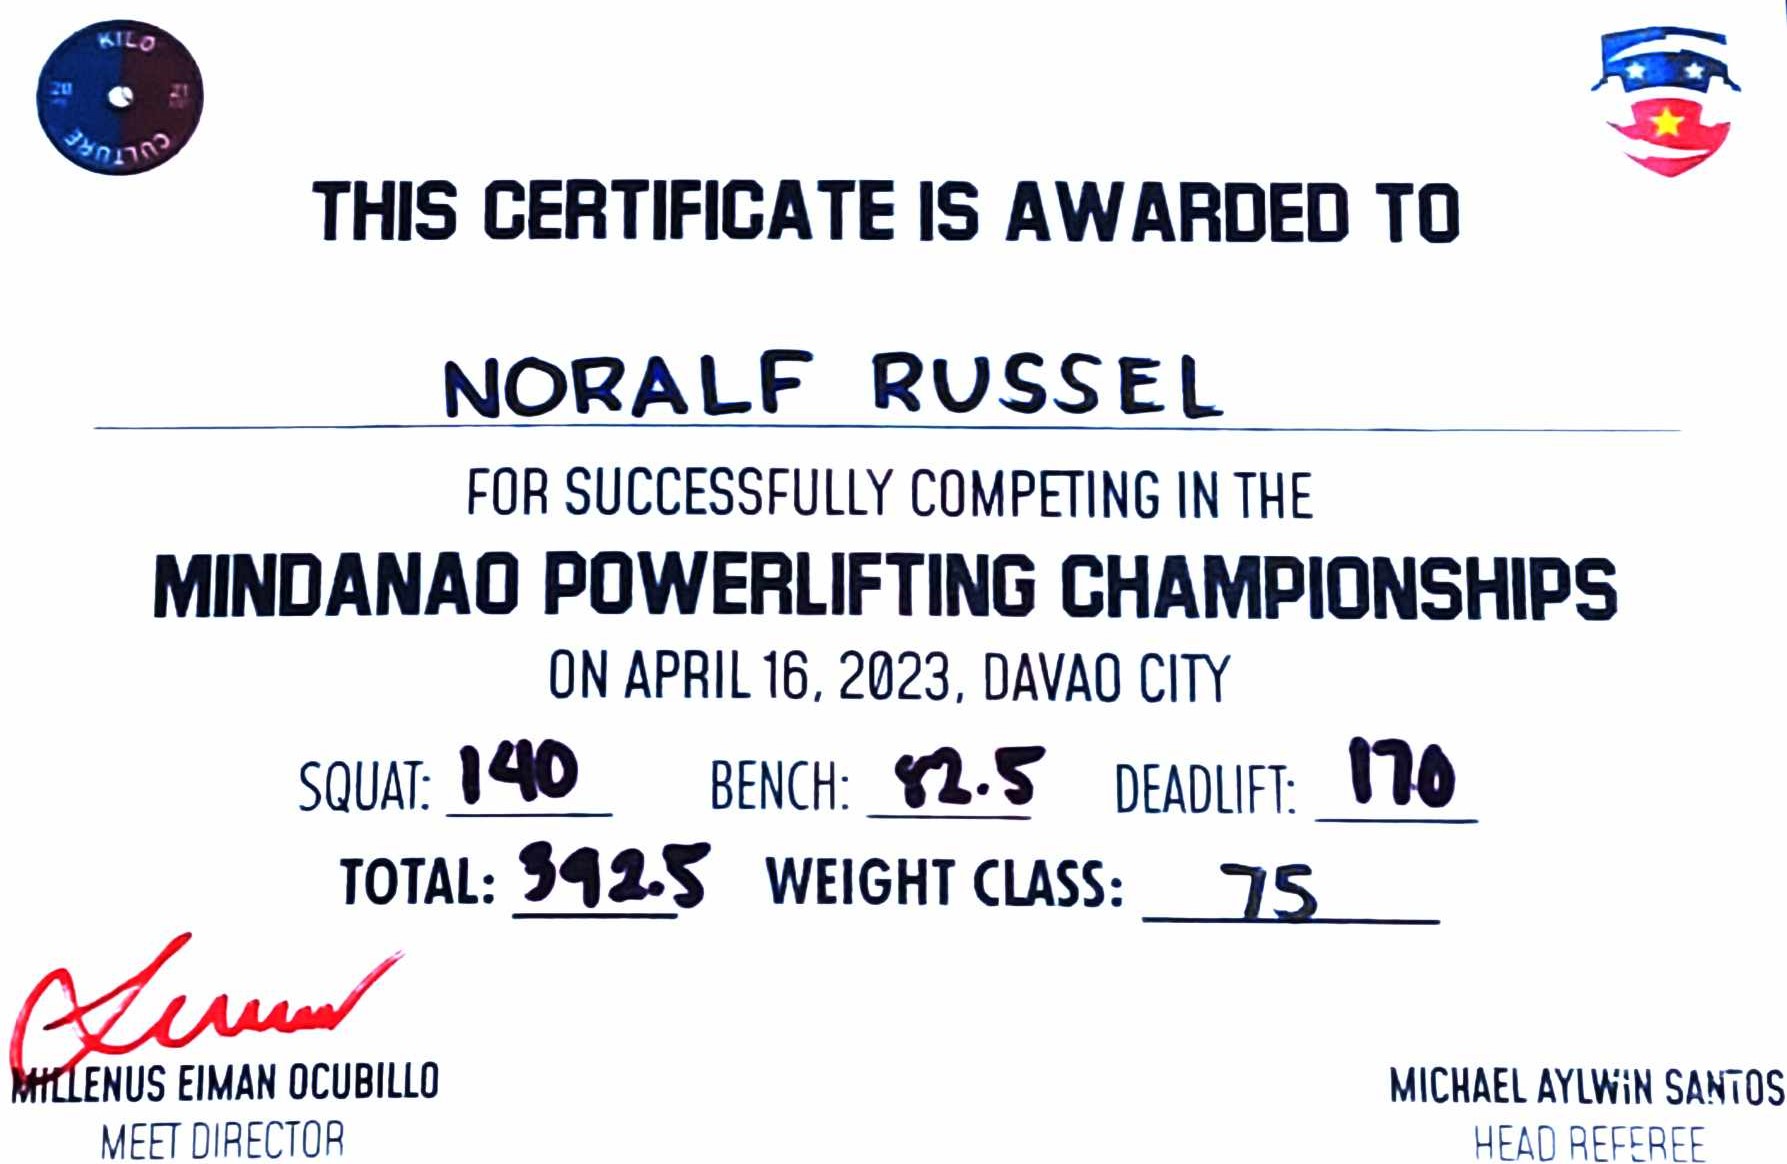 KILO
20 21
CULTURE
THIS CERTIFICATE IS AWARDED TO
NORALF RUSSEL
FOR SUCCESSFULLY COMPETING IN THE
MINDANAO POWERLIFTING CHAMPIONSHIPS
ON APRIL 16, 2023, DAVAO CITY
SQUAT: 140 BENCH: 82.5 DEADLIFT: 170
TOTAL: 392.5 WEIGHT CLASS: 75
MILLENUS EIMAN OCUBILLO
MEET DIRECTOR
MICHAEL AYLWIN SANTOS
HEAD REFEREE